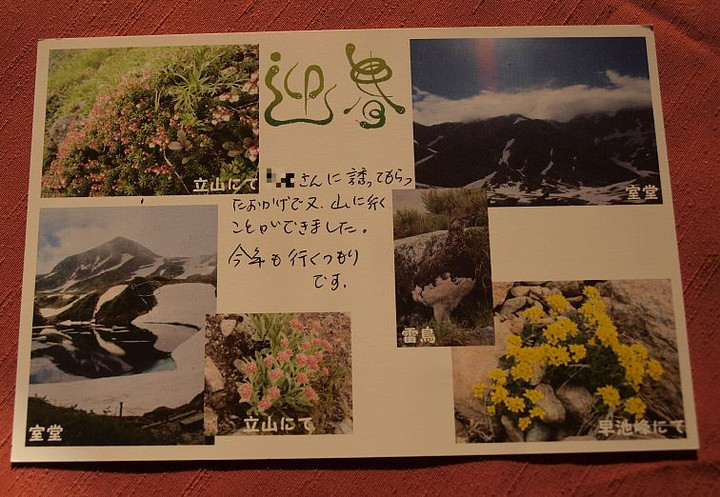 迎春
立山にて
室堂
さんに誘ってもらっ
たおかげで又、山に行く
ことができました。
今年も行くつもり
です。
雷鳥
室堂
立山にて
早池峰にて